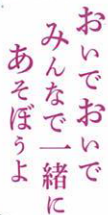 おいでおいで
みんなで一緒に
あそぼうよ